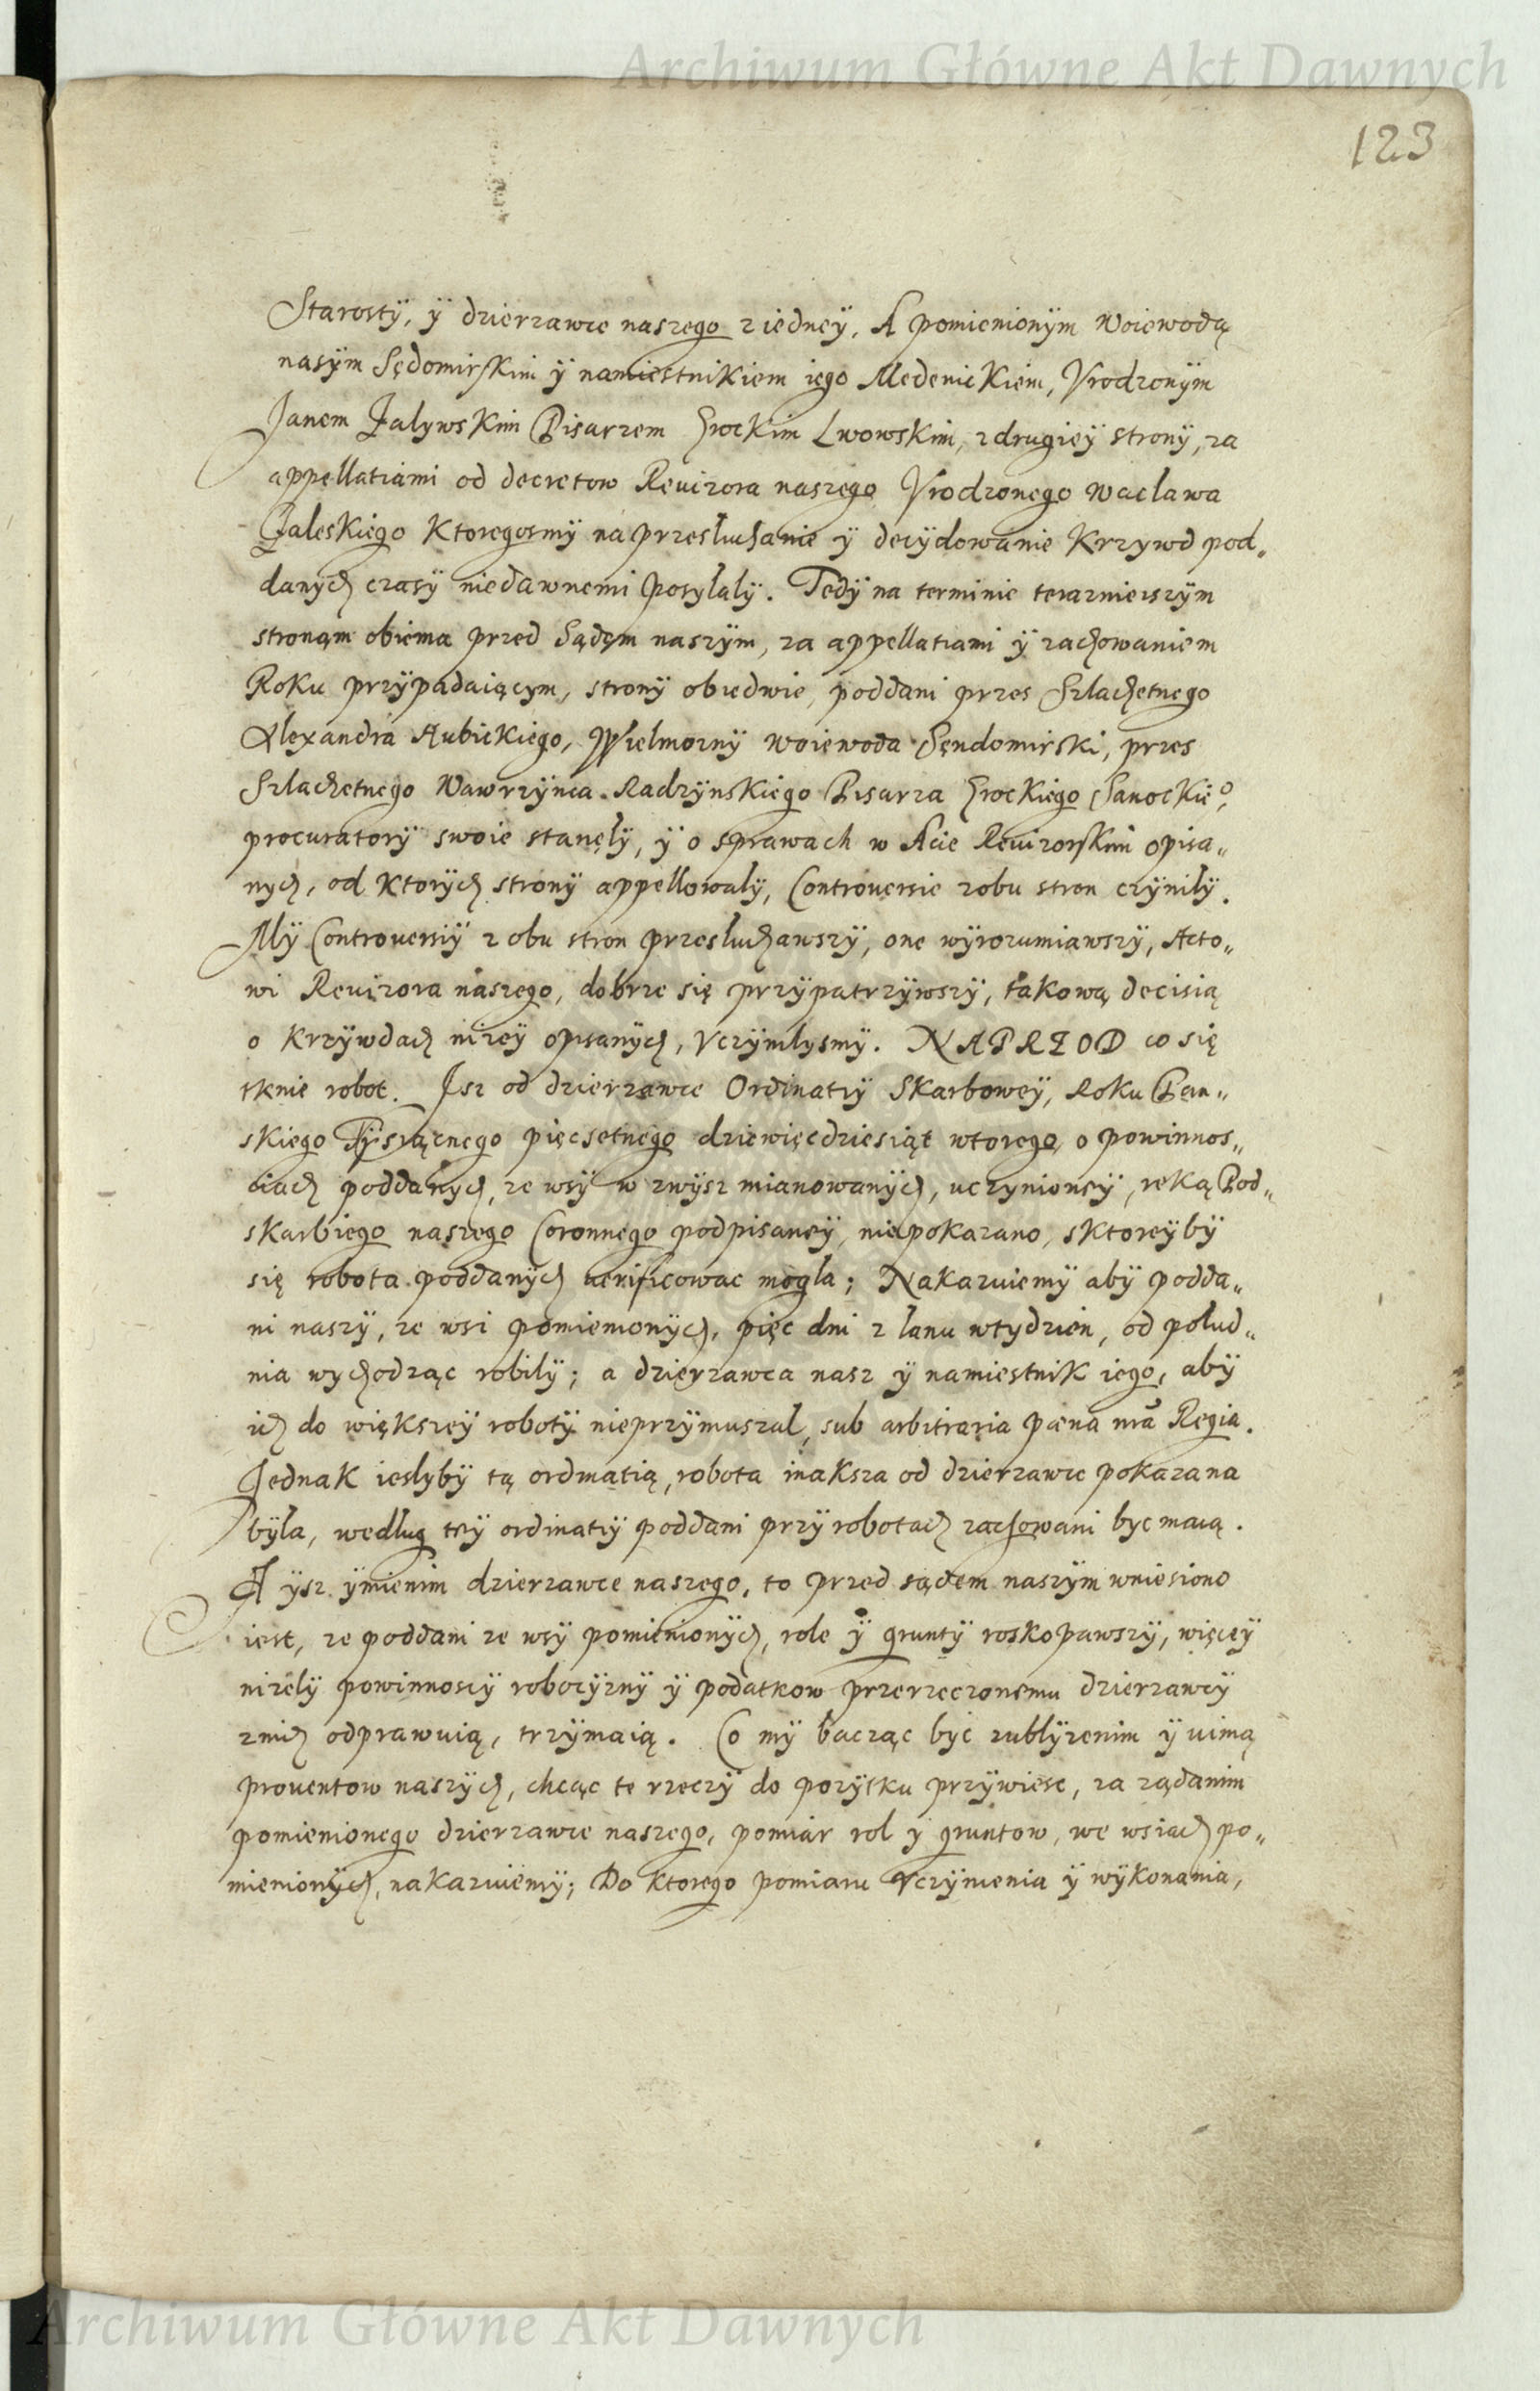 Archiwum Główne Akt Dawnych
123
Starostÿ, ÿ dzierzawce naszego z iedneÿ, A pomienionÿm Woiewodą
nasÿm Sędomirskim ÿ namiestnikiem iego Medenickiem, Vrodzonÿm
Janem Zalywskim Pisarzem Grockim Lwowskim, z drugieÿ stronÿ, za
appellatiami od decretow Reuizora naszego Vrodzonego Wacława
Zaleskiego Ktoregosmÿ na przesłuchanie ÿ decÿdowanie Krzywd pod„
danÿch czasÿ niedawnemi posÿlalÿ. Tedÿ na terminie terazniejszÿm
stronąm obiema przed Sądęm naszÿm, za appellatiami ÿ zachowaniem
Roku przÿpadaiącym, stronÿ obiedwie, poddani przes Szlachetnego
Alexandra Aubickiego, Wielmoznÿ Woiewoda Sęndomirski, przes
Szlachetnego Wawrzÿnca Radzÿnskiego Pisarza Grockiego Sanockie͡o,
procuratorÿ swoie stanęłÿ, ÿ o sprawach w Acie Reuizorskim opisa„
nÿch, od Ktorÿch stronÿ appellowalÿ, Controuersie z obu stron czÿnilÿ.
Mÿ Controuersiÿ z obu stron przesłuchawszÿ, one wÿrozumiawszÿ, Acto„
wi Reuizora naszego, dobrze się przÿpatrzÿwszÿ, takową decisią
o krzÿwdach nizeÿ opisanÿch, Vczÿnilysmÿ. NAPRZOD co się
tknie robot. Isz od dzierzawce Ordinatiÿ Skarboweÿ, Roku Pan„
skiego Tÿsiącnego pięcsetnego dziewięcdziesiąt wtorego, o powinnos„
ciach poddanÿch, ze wsÿ w zwÿsz mianowanÿch, uczynioneÿ, ręką Pod„
skarbiego naszego Coronnego podpisaneÿ, niepokazano, sktoreÿbÿ
się robota poddanÿch uerificowac mogla; Nakazuiemÿ abÿ podda„
ni naszÿ, ze wsi pomienionÿch, pięc dni z łanu wtydzien, od połud„
nia wychodząc robilÿ; a dzierzawca nasz ÿ namiestnik iego, abÿ
ich do większeÿ robotÿ nieprzÿmuszal, sub arbitraria pœna nrã Regia.
Jednak ieslybÿ tą ordinatią, robota inaksza od dzierzawce pokazana
bÿla, według teÿ ordinatiÿ poddani przÿ robotach zachowani byc maią.
A ÿsz ÿmienim dzierzawce naszego, to przed sądem naszÿm wniesiono
iest, ze poddani ze wsÿ pomienionÿch, role ÿ gruntÿ roskopawszÿ, więceÿ
nizelÿ powinnosciÿ robocÿznÿ ÿ podatkow przerzeczonemu dzierzawcÿ
znich odprawuią, trzÿmaią. Co mÿ bacząc bÿc zublÿzenim ÿ uimą
prouentow naszÿch, chcąc te rzeczÿ do pozÿtku przÿwiesc, za ządanim
pomienionego dzierzawce naszego, pomiar rol ÿ gruntow, we wsiach po„
mienionÿch, nakazuiemÿ; Do ktorego pomiaru Vczÿnienia ÿ wÿkonania,
Archiwum Główne Akt Dawnych